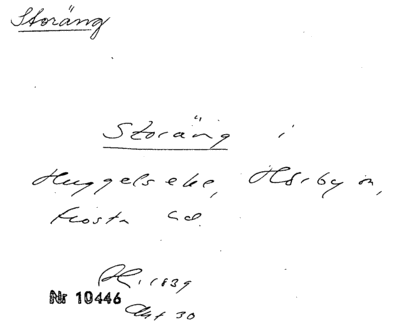 Storäng
Storäng i
Huggelseke, Hörby sn,
Frosta hd.
H. 1839
Nr 10446
Akt 30